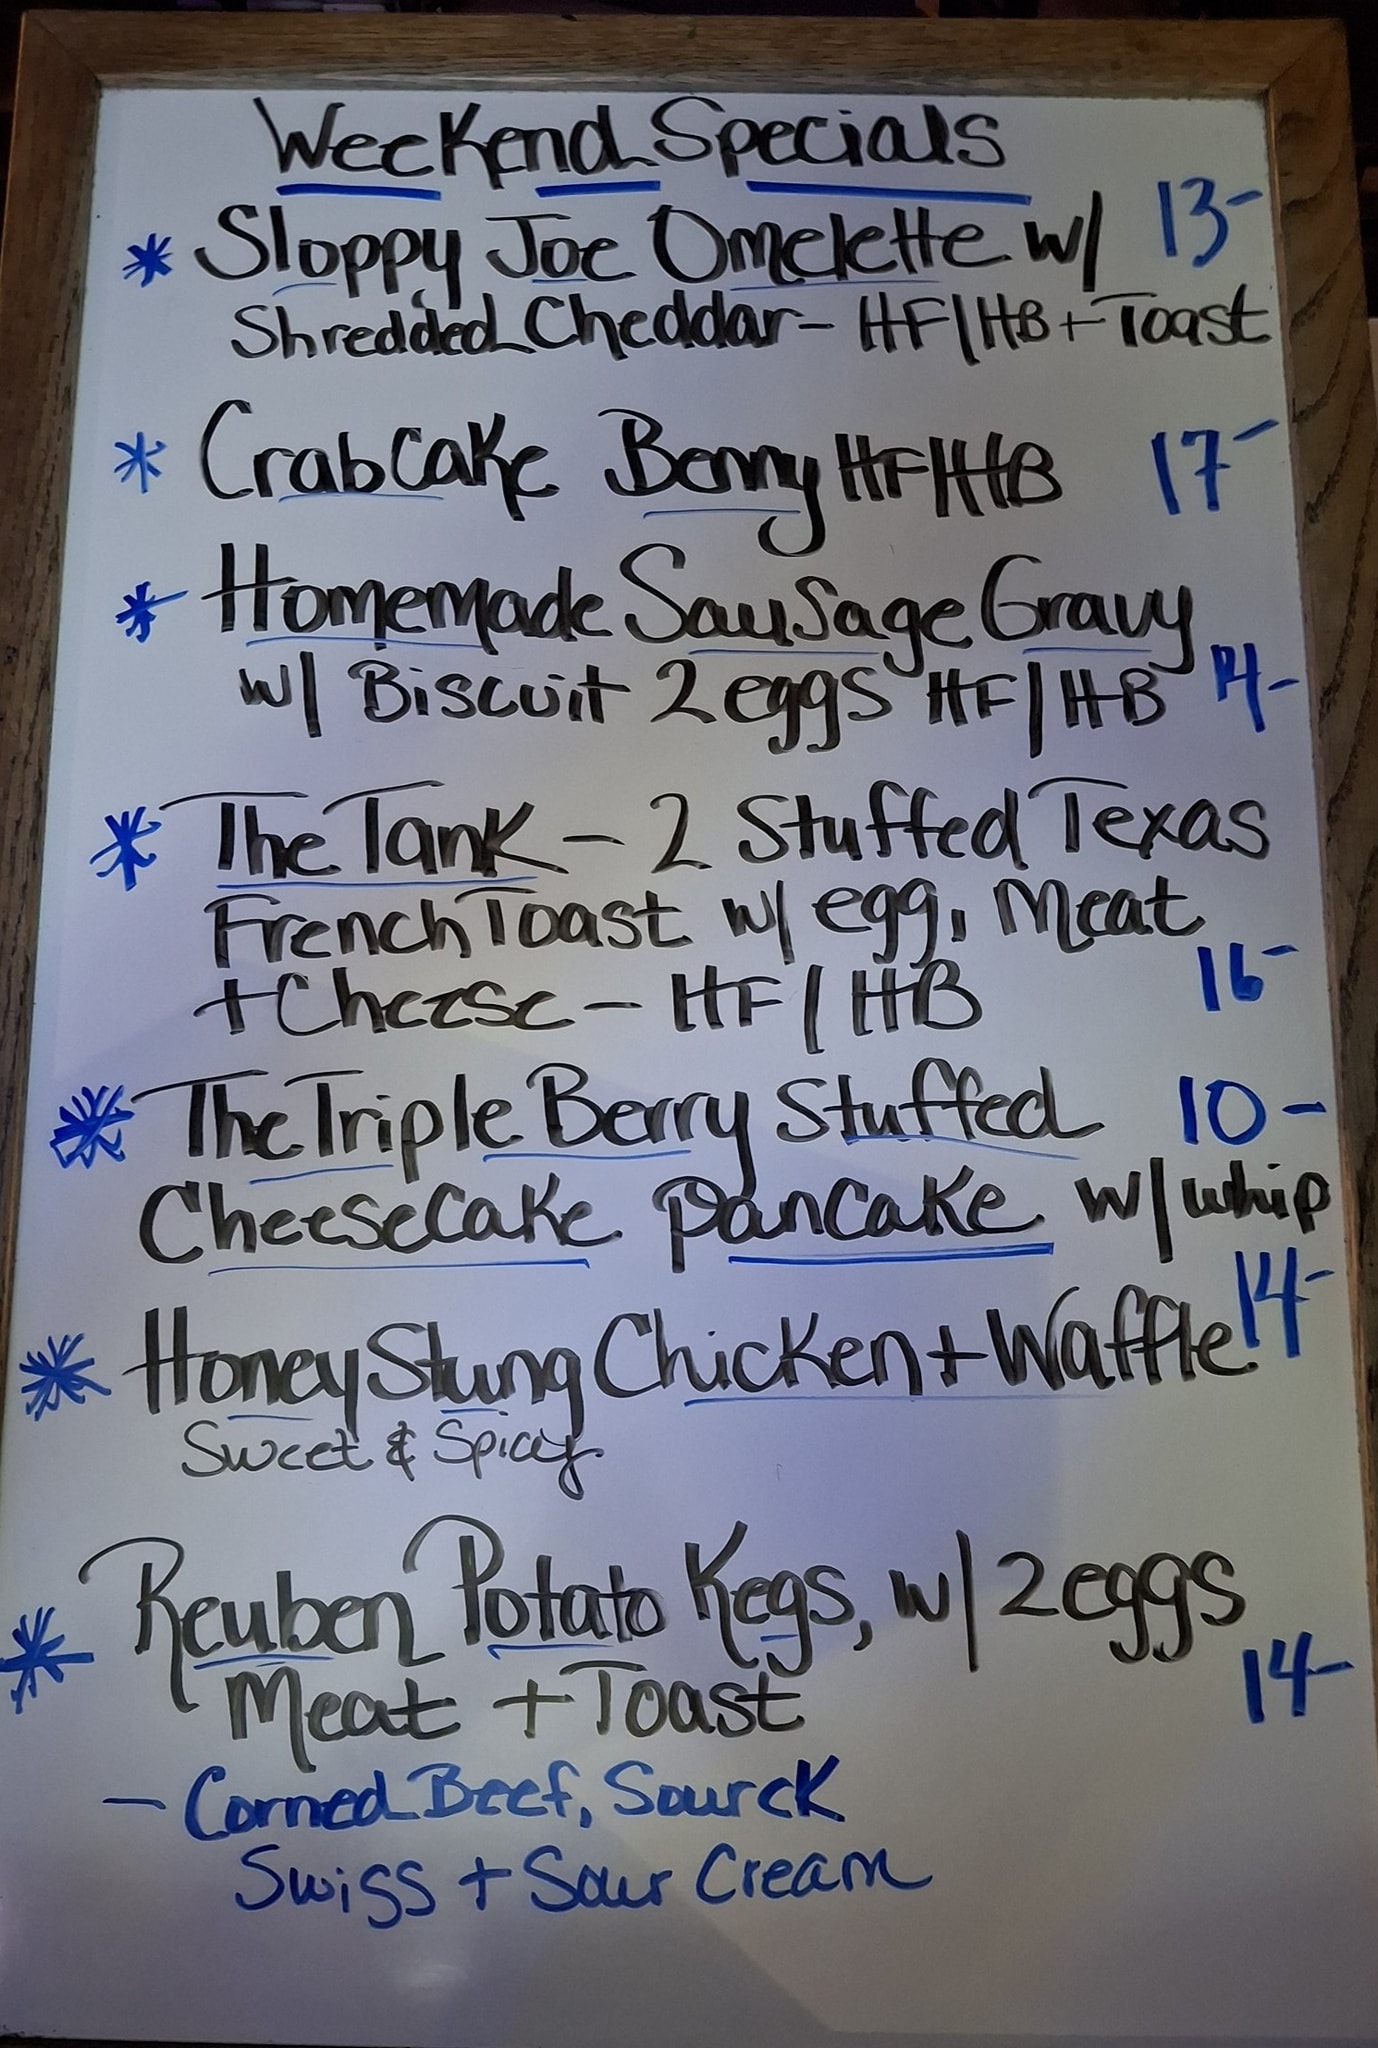 Weekend Specials
* Sloppy Joe Omelette w/ 13-
Shredded Cheddar- HF/HB + Toast
* Crabcake Benny HF/HB 17-
* Homemade Sausage Gravy
w/ Biscuit 2 eggs HF/HB 14-
* The Tank - 2 Stuffed Texas
French Toast w/ egg, Meat
+ Cheese - HF/HB 16-
* The Triple Berry Stuffed 10-
Cheesecake Pancake w/ whip
* Honey Stung Chicken + Waffle 14-
Sweet & Spicy
* Reuben Potato Kegs, w/ 2 eggs
Meat + Toast 14-
- Corned Beef, Sourck
Swiss + Sour Cream